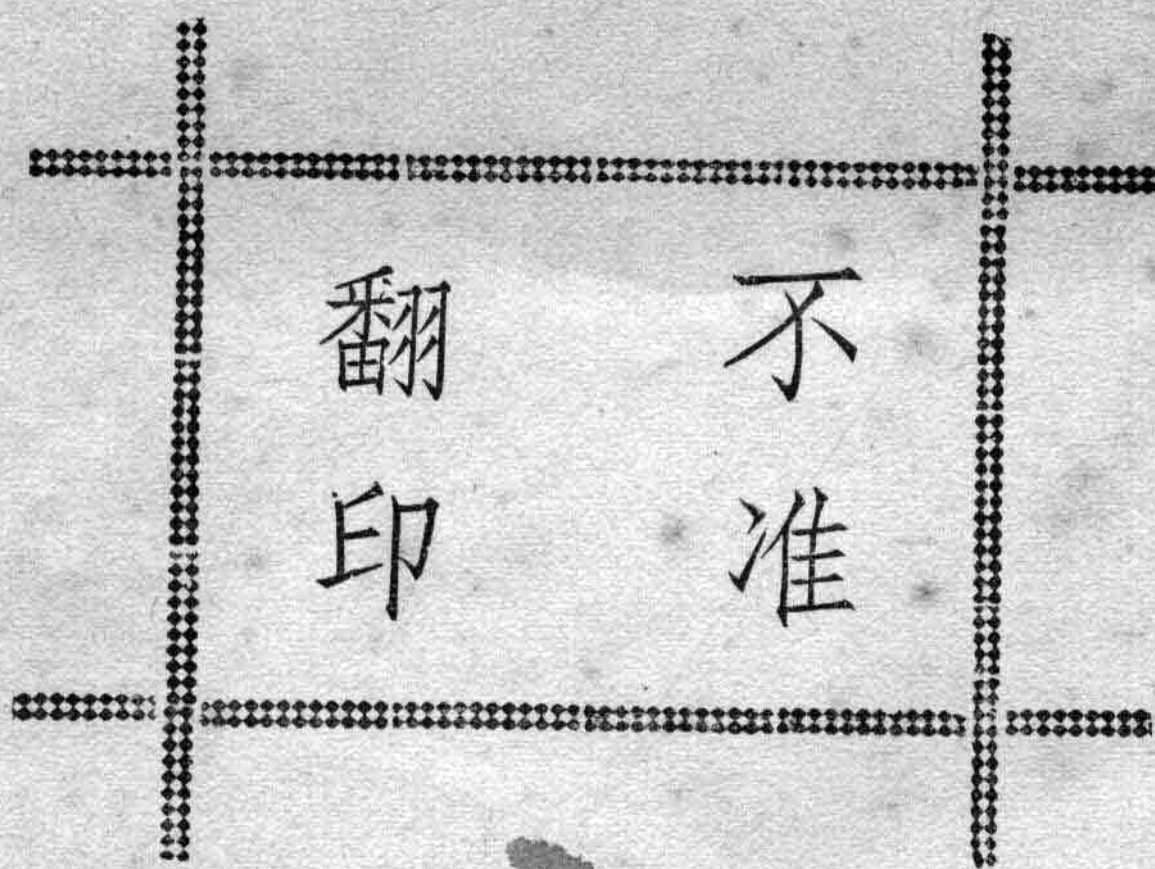 不准
翻印